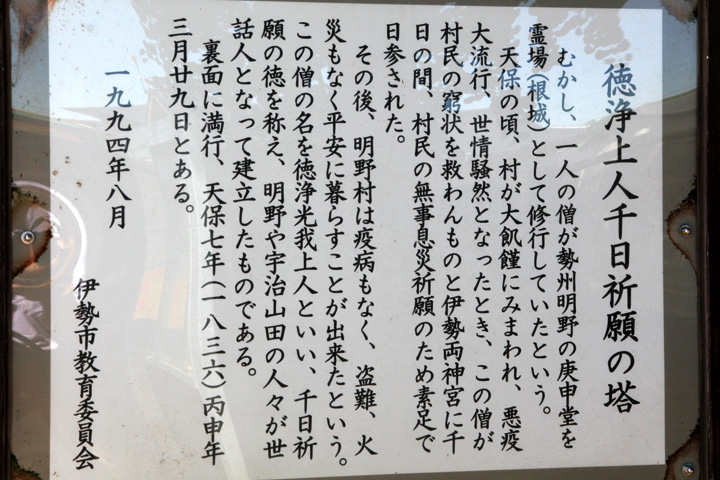 徳浄上人千日祈願の塔
むかし、一人の僧が勢州明野の庚申堂を
霊場（根城）として修行していたという。
天保の頃、村が大飢饉にみまわれ、悪疫
大流行、世情騒然となったとき、この僧が
村民の窮状を救わんものと伊勢両神宮に千
日の間、村民の無事息災祈願のため素足で
日参された。
その後、明野村は疫病もなく、盗難、火
災もなく平安に暮らすことが出来たという。
この僧の名を徳浄光我上人といい、千日祈
願の徳を称え、明野や宇治山田の人々が世
話人となって建立したものである。
裏面に満行、天保七年（一八三六）丙申年
三月廿九日とある。
一九九四年八月
伊勢市教育委員会